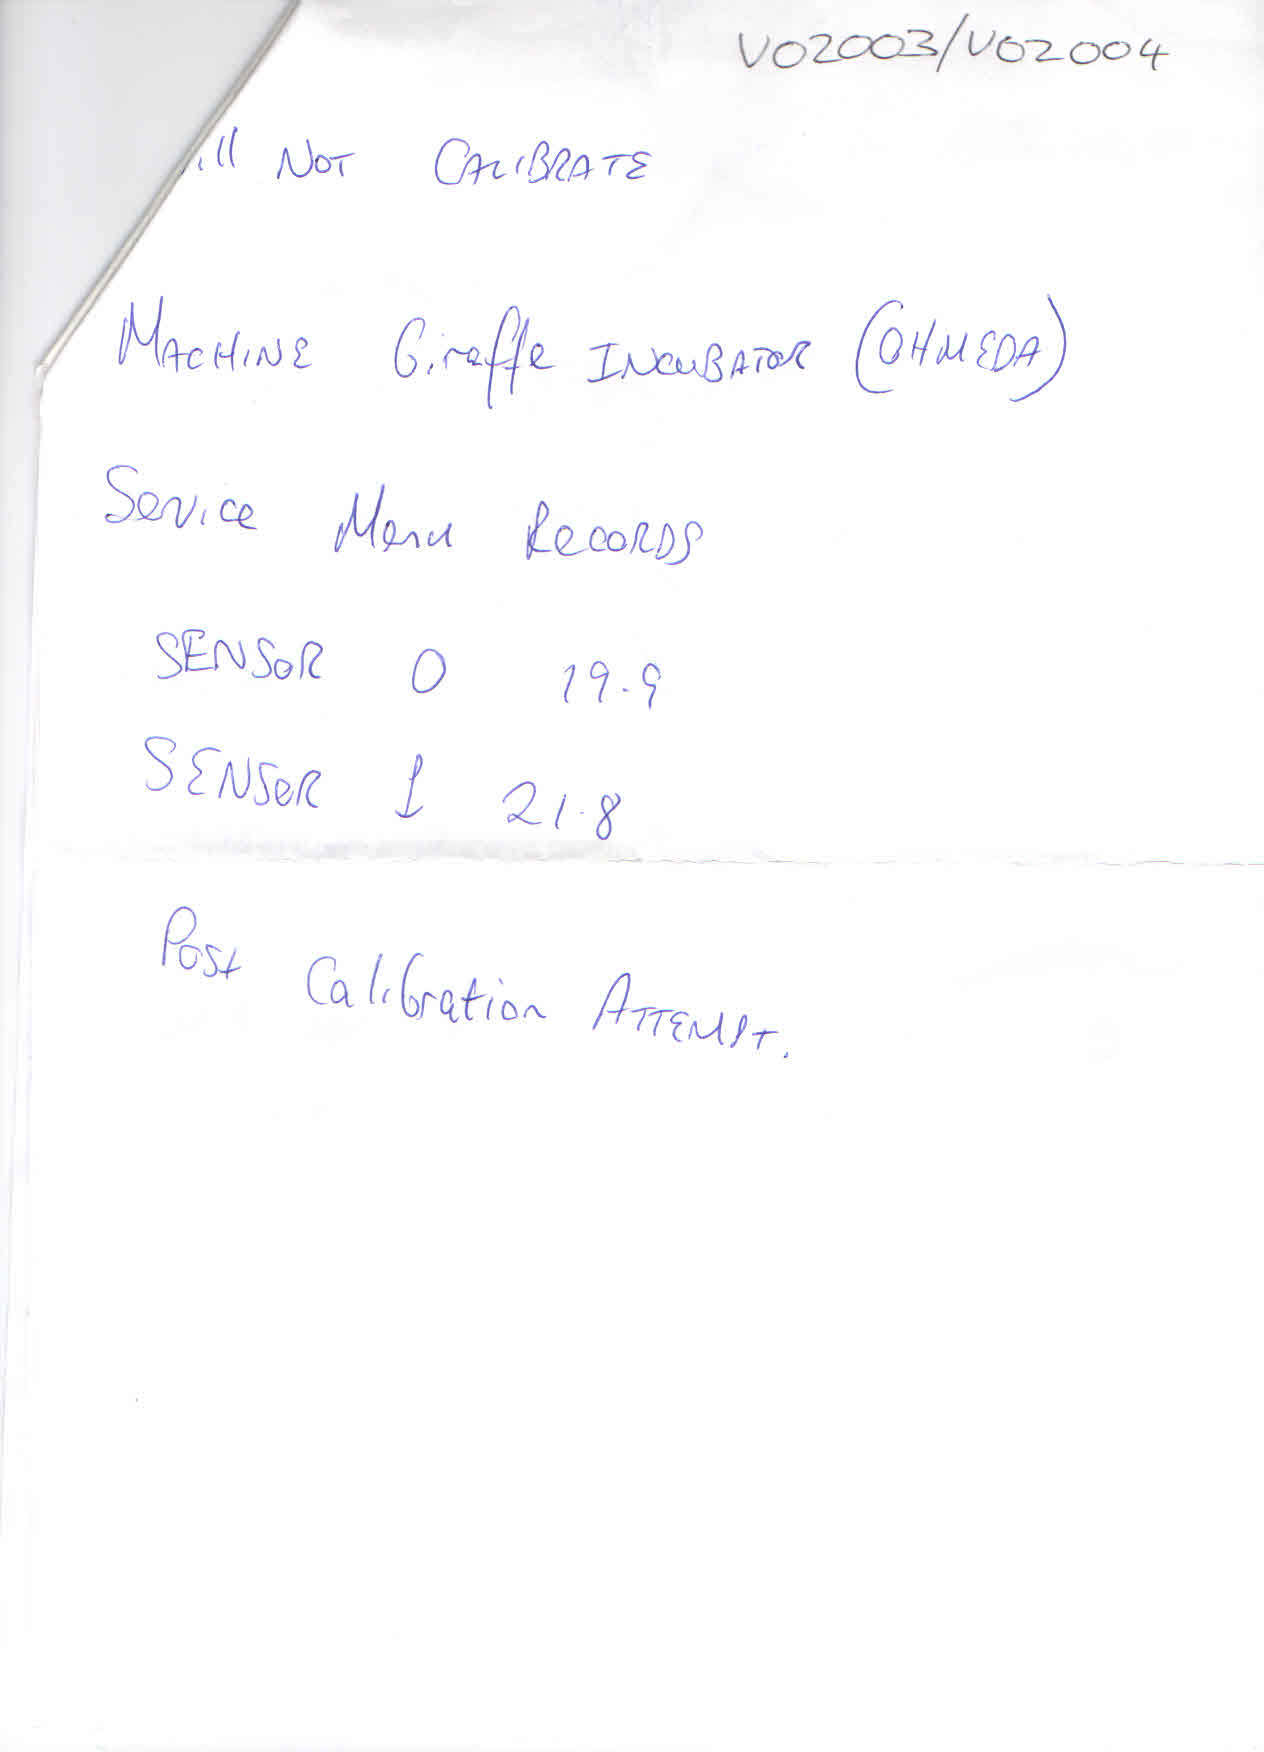 VO2003/VO2004
ill NOT CALIBRATE
MACHINE Giraffe INCUBATOR (OHMEDA)
Service Menu RECORDS
SENSOR 0 19.9
SENSOR 1 21.8
Post Calibration ATTEMPT.